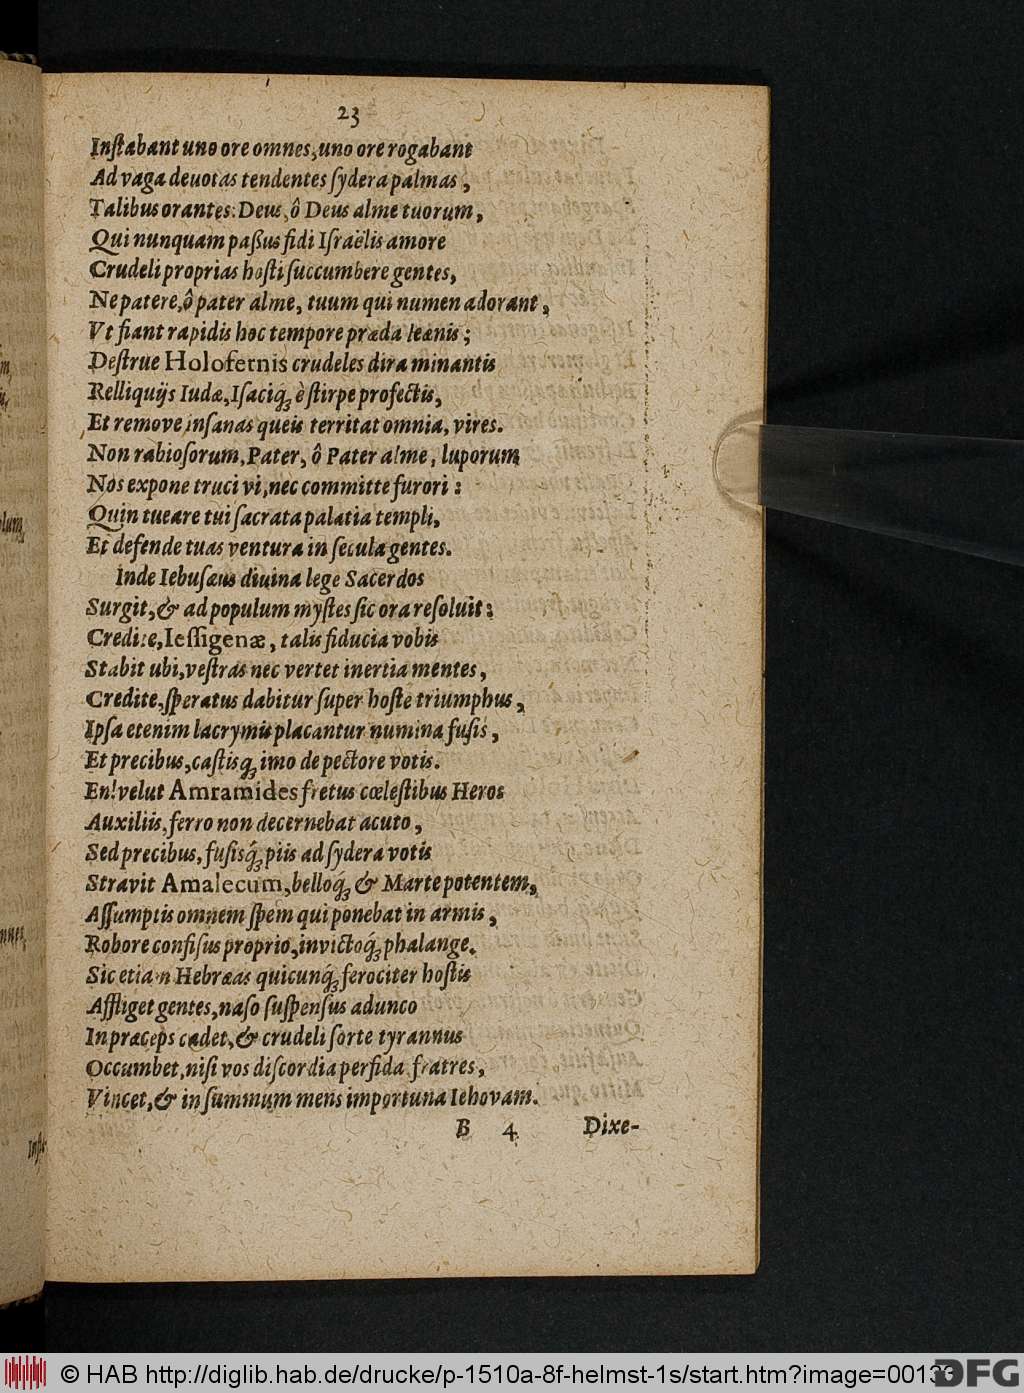 23
Inſtabant uno ore omnes, uno ore rogabant
Ad vaga deuotas tendentes ſydera palmas,
Talibus orantes: Deus, ô Deus alme tuorum,
Qui nunquam paßus fidi Iſraëlis amore
Crudeli proprias hoſti ſuccumbere gentes,
Ne patere, ô pater alme, tuum qui numen adorant,
Vt fiant rapidis hoc tempore præda leænis;
Deſtrue Holofernis crudeles dira minantis
Relliquijs Iudæ, Iſaciq́ꝫ è ſtirpe profectis,
Et remove inſanas queis territat omnia, vires.
Non rabioſorum, Pater, ô Pater alme, luporum
Nos expone truci vi, nec committe furori:
Quin tueare tui ſacrata palatia templi,
Et defende tuas ventura in ſecula gentes.
Inde Iebuſæus diuina lege Sacerdos
Surgit, & ad populum myſtes ſic ora reſoluit:
Credite, Ieſſigenæ, talis fiducia vobis
Stabit ubi, veſtras nec vertet inertia mentes,
Credite, ſperatus dabitur ſuper hoſte triumphus,
Ipſa etenim lacrymis placantur numina fuſis,
Et precibus, caſtisq́ꝫ imo de pectore votis.
En! velut Amramides fretus cœleſtibus Heros
Auxiliis, ferro non decernebat acuto,
Sed precibus, fuſisq́ꝫ piis ad ſydera votis
Stravit Amalecum, belloq́ꝫ & Marte potentem,
Aſſumptis omnem ſpem qui ponebat in armis,
Robore confiſus proprio, invictoq́ꝫ phalange.
Sic etiam Hebræas quicunq́ꝫ ferociter hoſtis
Affliget gentes, naſo ſuſpenſus adunco
In præceps cadet, & crudeli ſorte tyrannus
Occumbet, niſi vos diſcordia perfida fratres,
Vincet, & in ſummum mens importuna Iehovam.
B 4 Dixe-
© HAB http://diglib.hab.de/drucke/p-1510a-8f-helmst-1s/start.htm?image=00133
DFG